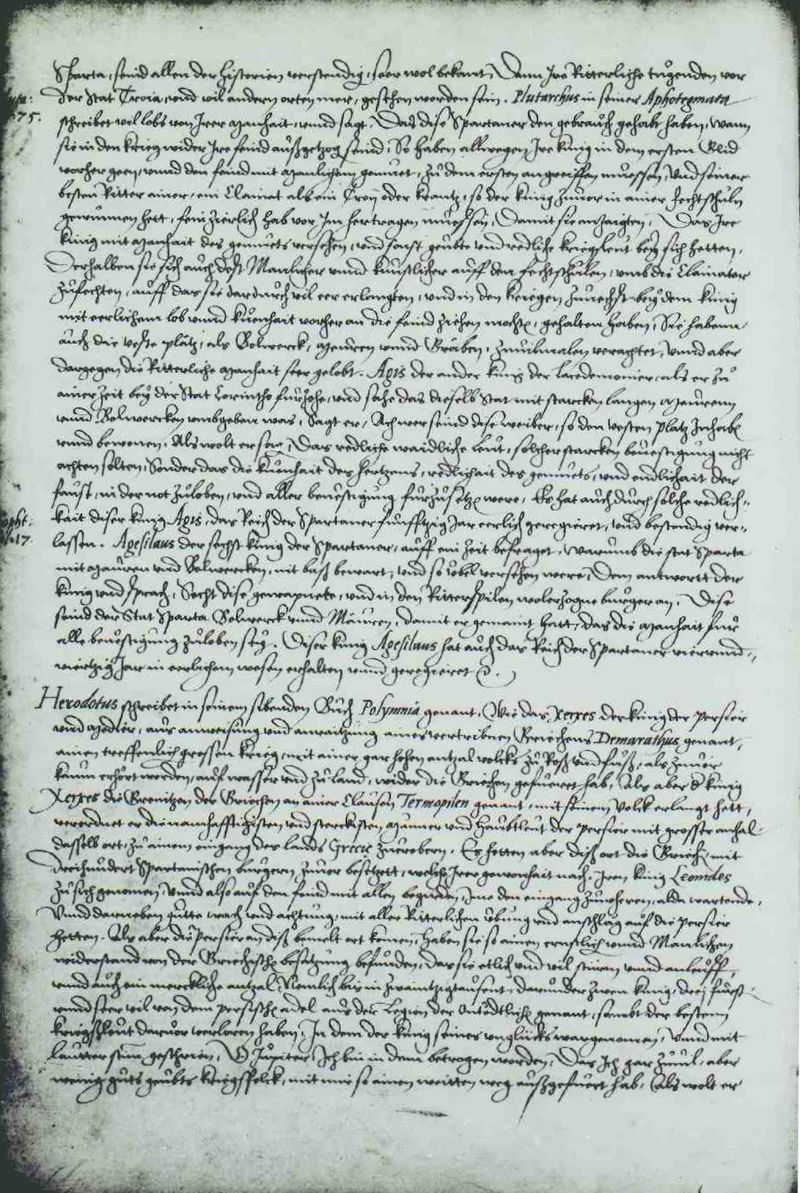 Sparta, seind allen der Historien verstendig, seer wol bekant, Dann Ire Ritterliche tugenden vor
der Stat Troia, und vil andern orten mer, gesehen worden sein. Plutarchus in seiner Aphotegmata
schreibet vil lobs von Irer manhait, unnd sagt, Das dise Spartaner den gebrauch gehabt haben, wann
sie in den krieg wider Ire feind außgezogen seind, So haben allwegen Ire Künig in dem ersten Glid
vorher geen, unnd den feind mit manlichem gemuet, zu dem ersten angreiffen muessen, Und seiner
besten Ritter ainer, ein Clainat als ein Cron oder Krantz, so der künig zuvor in ainer Fechtschuln
gewunnen hett, fein zierlich hab vor Im hertragen muessen, Damit sie anzaigten, Das Ire
künig mit manhait des gemuets versehen, und sonst geubte und redliche kriegsleut bey sich hetten,
Derhalben sie sich auch dest Manlicher unnd künstlicher auff den fechtschulen, umb die Clainater
zufechten, auff das sie dardurch vil eer erlangten, und in den kriegen zunechst bey dem künig
mit eerlichem lob unnd kuenhait vorher an die feind ziehen mochten, gehalten haben, Sie haben
auch die veste plätz, als Bolwerck, mauren unnd Gräben, zuvilmalen verachtet, Unnd aber
dargegen die Ritterliche manhait seer gelobt. Agis der ander künig der Lacedemonier, als er zu
ainer zeit bey der Stat Corintho fürzohe, und sahe das dieselb Stat mit starcken langen mauren
unnd Bolwercken umbgeben was, Sagt er, Ach wer seind dise weiber, so den vesten platz Inhaben
unnd bewonen, Als wolt er sagen, Das redliche waidliche leut, solcher starcken bevestigung nicht
achten solten, Sonder das die kuenhait des hertzens, redlichait des gemuets, und endlichait der
faust, in der not zuloben, und aller bevestigung fürzusetzen were, Es hat auch durch solche redlich-
kait diser künig Agis, das Reich der Spartaner fünfftzig Jar eerlich geregieret, und bestendig ver-
lassen. Agesilaus der sechst künig der Spartaner, auff ein zeit befraget, Warumb die stat Sparta
mit mauren und Bolwercken, nit baß bewart, und so übel versehen were, Dem antwortt der
künig und sprach, Secht dise gewapnete, und in den Ritterspilen wolerzogne burger an, Dise
seind der Stat Sparta Bolwerck unnd Mauren, damit er gemaint hatt, das die manhait für
alle bevestigung zuloben sey. Diser künig Agesilaus hat auch das Reich der Spartaner vierund-
viertzig Jar in eerlichem wesen erhalten unnd geregieret
Herodotus schreibet in seinem sibenden Buch Polymnia genant, Wie das Xerxes der künig der Persier
und Medier, aus anweisung und anraitzung aines vertribnen Griechens Demarathus genant,
ainen treffenlich grossen krieg, mit ainer gar hohen antzal volcks zu Roß und fuß, als zuvor
kaum erhört worden, auf wasser und zu land, wider die Griechen gefueret hab, Als aber der künig
Xerxes die Grenitzen der Griechen an ainer Clausen Termopilen genant, mit seinem Volck erlangt hatt,
verordnet er die namhafftigisten und sterckisten, Männer und Haubtleut der persier mit grosser anzal
dasselb ort, zu ainem eingang des lands Grecie zuerobern. Es hetten aber diß ort die Griechen mit
dreihundert Spartanischen burgern zuvor besetzett, welche Irer gewonhait nach, Iren künig Leonides
zu sich genomen, Unnd also auf den feind mit allen begirden, Ime den eingang zuweren, alda wartende,
Unnd darneben gutte wach und achtung, mit aller Ritterlichen übung und anschleg auf die persier
hetten. Als aber die Persier an diß bemelt ort komen, haben sie so ainen ernstlichen unnd Manlichen
widerstand von der Griechischen besatzung befunden, das sie etlich und vil stürm unnd anleuff,
unnd auch ein merckliche antzal Nemlich bis in zwaintzigtausent, darunder zwen künig, drey fürsten
unnd seer vil von dem persischen adel aus der Legion der Untödtlichen genant, sambt der besten
kriegsleut darvor verloren haben, In dem der künig seines unglücks wargenomen, Unnd mit
lautter stim geschrien, O Jupiter Ich bin in dem betrogen worden, Das Ich gar zuvil, aber
wenig guts geubts kriegsvolck, mit mir so ainen weitten weg außgefuert hab, Als wolt er